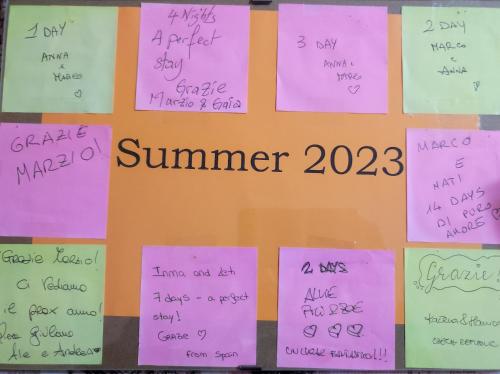 1 DAY
ANNA
e
MARCO
4 Nights
A perfect
stay
Grazie
Marzio & Gaia
3 DAY
ANNA e
MARCO
2 DAY
MARCO
e
ANNA
GRAZIE
MARZIO!
Summer 2023
MARCO
E
NATI
14 DAYS
DI PURO
AMORE
Grazie Marzio!
Ci vediamo
il prox anno!
Giuliano
Ale e Andrea
Inma and Leti
7 days - a perfect
stay!
GRAZIE
from Spain
2 DAYS
ALLIE
UN LUGAR FANTASTICO!!!
Grazie!
CZECH REPUBLIC